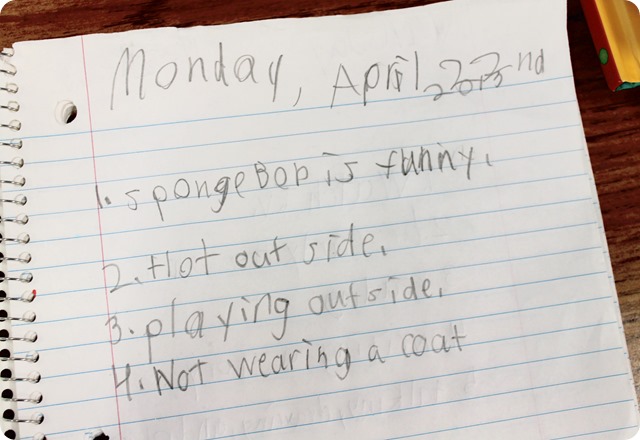 Monday, April 22nd
1. spongeBob is funny.
2. Hot out side.
3. playing outside.
4. Not wearing a coat